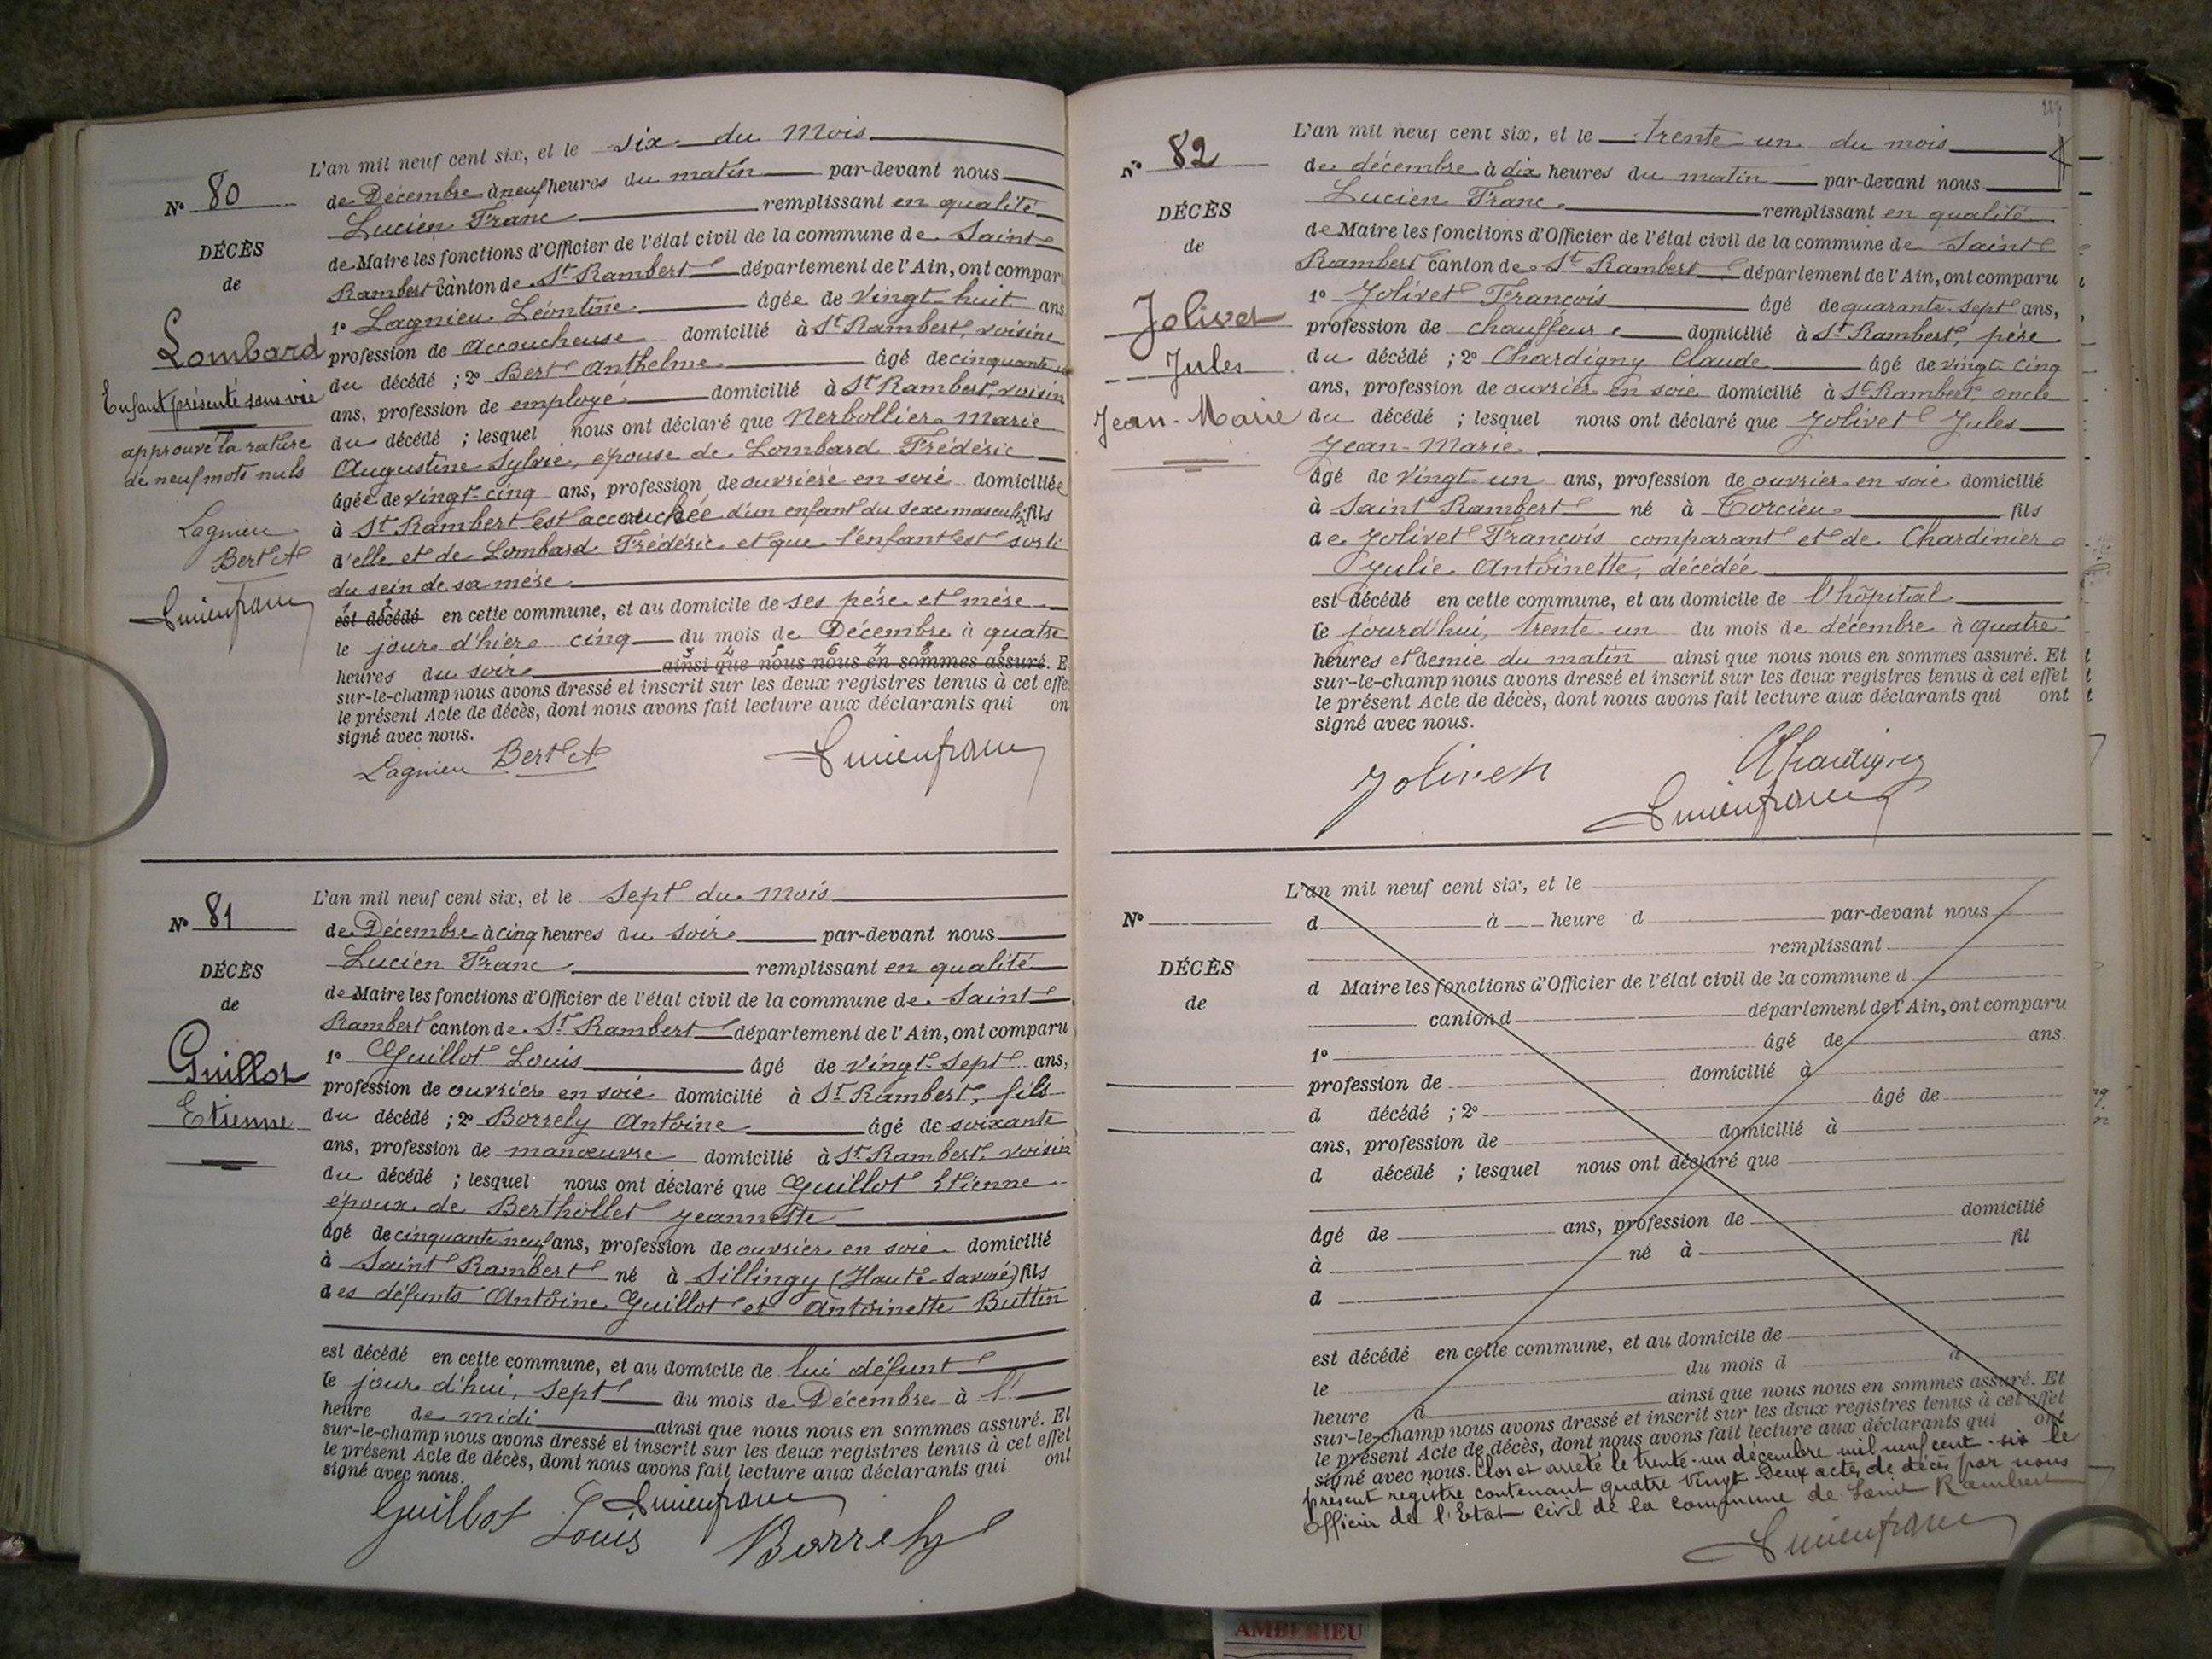 N° 80
DÉCÈS
de
Lombard
Enfant présenté sans vie
approuvé la rature
de neuf mots nuls
Lagnieu
Bert A
Lucien franc
L'an mil neuf cent six, et le six du Mois
de Décembre à neuf heures du matin par-devant nous
Lucien Franc remplissant en qualité
de Maire les fonctions d'Officier de l'état civil de la commune de Saint
Rambert canton de St Rambert département de l'Ain, ont comparu
1° Lagnieu Léontine âgée de vingt-huit ans
profession de accoucheuse domicilié à St Rambert, voisine
du décédé ; 2° Bert Anthelme âgé de cinquante
ans, profession de employé domicilié à St Rambert, voisin
du décédé ; lesquel nous ont déclaré que Nerbollier Marie
Augustine Sylvie, épouse de Lombard Frédéric
âgée de vingt-cinq ans, profession de ouvrière en soie domiciliée
à St Rambert est accouchée d'un enfant du sexe masculin, fils
d'elle et de Lombard Frédéric et que l'enfant est sorti
du sein de sa mère
1 2
est décédé en cette commune, et au domicile de ses père et mère
le jour d'hier cinq du mois de Décembre à quatre
3 4 5 6 7 8 9
heures du soir ainsi que nous nous en sommes assuré. E
sur-le-champ nous avons dressé et inscrit sur les deux registres tenus à cet effe
le présent Acte de décès, dont nous avons fait lecture aux déclarants qui on
signé avec nous.
Lagnieu Bert A Lucien franc
N° 81
DÉCÈS
de
Guillot
Etienne
L'an mil neuf cent six, et le Sept du Mois
de Décembre à cinq heures du soir par-devant nous
Lucien Franc remplissant en qualité
de Maire les fonctions d'Officier de l'état civil de la commune de Saint
Rambert canton de St Rambert département de l'Ain, ont comparu
1° Guillot Louis âgé de vingt-sept ans,
profession de ouvrier en soie domicilié à St Rambert, fils
du décédé ; 2° Borrely Antoine âgé de soixante
ans, profession de manœuvre domicilié à St Rambert, voisin
du décédé ; lesquel nous ont déclaré que Guillot Etienne
époux de Berthollet Jeannette
âgé de cinquante neuf ans, profession de ouvrier en soie domicilié
à Saint Rambert né à Sillingy (Haute Savoie) fils
des défunts Antoine Guillot et Antoinette Buttin
est décédé en cette commune, et au domicile de lui défunt
le jour d'hui, sept du mois de Décembre à l'
heure de midi ainsi que nous nous en sommes assuré. Et
sur-le-champ nous avons dressé et inscrit sur les deux registres tenus à cet effet
le présent Acte de décès, dont nous avons fait lecture aux déclarants qui ont
signé avec nous.
Guillot Louis Lucien franc Borrely
N° 82
DÉCÈS
de
Jolivet
Jules
Jean-Marie
L'an mil neuf cent six, et le trente un du mois
de décembre à dix heures du matin par-devant nous
Lucien Franc remplissant en qualité
de Maire les fonctions d'Officier de l'état civil de la commune de Saint
Rambert canton de St Rambert département de l'Ain, ont comparu
1° Jolivet François âgé de quarante-sept ans,
profession de chauffeur domicilié à St Rambert, père
du décédé ; 2° Chardigny Claude âgé de vingt-cinq
ans, profession de ouvrier en soie domicilié à St Rambert oncle
du décédé ; lesquel nous ont déclaré que Jolivet Jules
Jean-Marie
âgé de vingt-un ans, profession de ouvrier en soie domicilié
à Saint Rambert né à Torcieu fils
de Jolivet François comparant et de Chardinier
Julie Antoinette, décédée
est décédé en cette commune, et au domicile de l'hôpital
le jourd'hui, trente un du mois de décembre à quatre
heures et demie du matin ainsi que nous nous en sommes assuré. Et
sur-le-champ nous avons dressé et inscrit sur les deux registres tenus à cet effet
le présent Acte de décès, dont nous avons fait lecture aux déclarants qui ont
signé avec nous.
Jolivet Chardigny
Lucien franc
N°
DÉCÈS
de
L'an mil neuf cent six, et le
d à heure d par-devant nous
remplissant
d Maire les fonctions d'Officier de l'état civil de la commune d
canton d département de l'Ain, ont comparu
1° âgé de ans.
profession de domicilié à
d décédé ; 2° âgé de
ans, profession de domicilié à
d décédé ; lesquel nous ont déclaré que
âgé de ans, profession de domicilié
à né à fil
d
est décédé en cette commune, et au domicile de
le du mois d à
heure d ainsi que nous nous en sommes assuré. Et
sur-le-champ nous avons dressé et inscrit sur les deux registres tenus à cet effet
le présent Acte de décès, dont nous avons fait lecture aux déclarants qui ont
signé avec nous. Clos et arrêté le trente-un décembre mil neuf cent-six le
présent registre contenant quatre vingt-deux actes de décès par nous
officier de l'Etat civil de la commune de Saint Rambert
Lucien franc
AMBERIEU